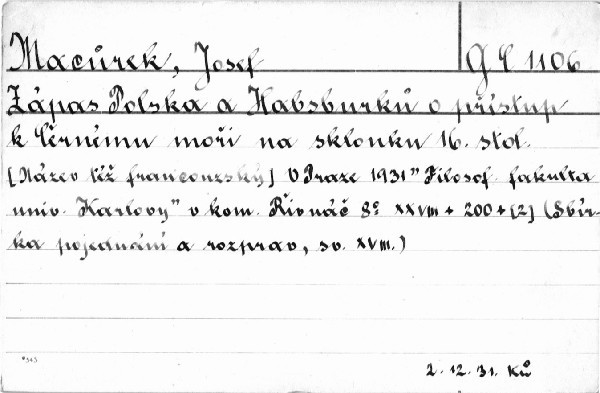 Macůrek, Josef G E 1106
Zápas Polska a Habsburků o přístup
k Černému moři na sklonku 16. stol.
[Název též francouzský] V Praze 1931 "Filosof. fakulta
univ. Karlovy" v kom. Řivnáč 8° XXVIII + 200 + [2] (Sbír-
ka pojednání a rozprav, sv. XVIII.)
*545
2. 12. 31. Ků